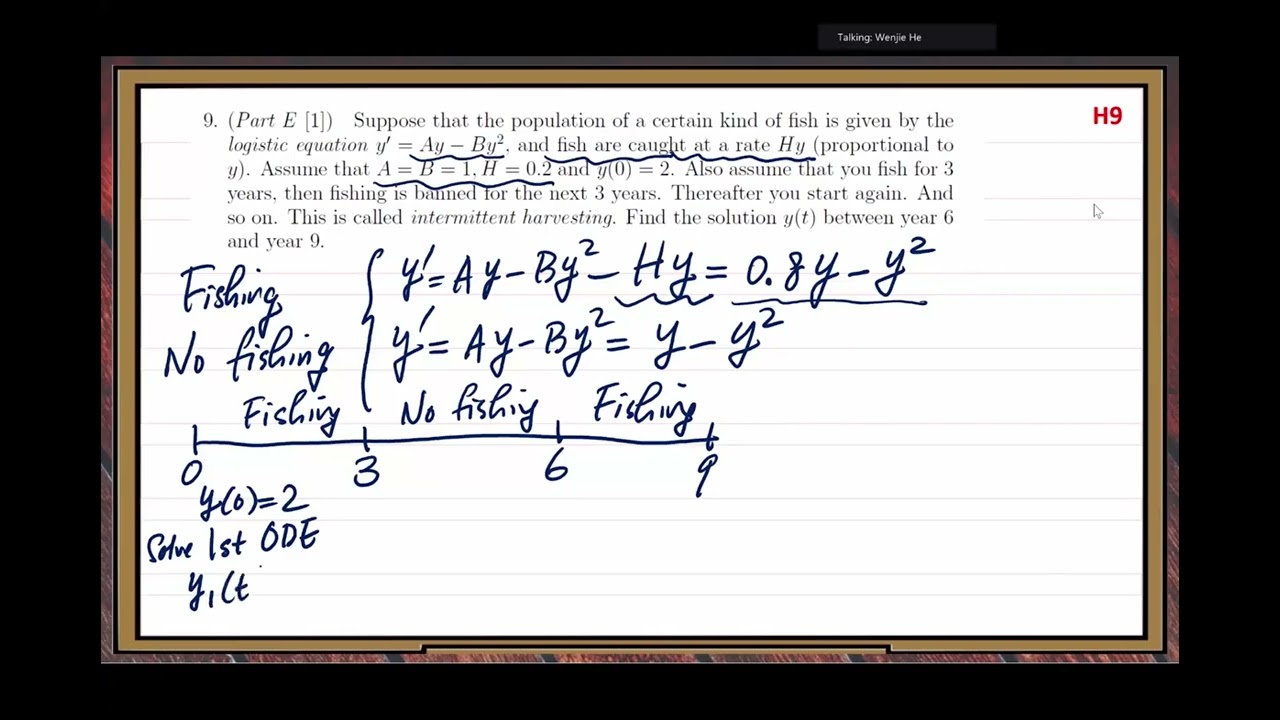 Talking: Wenjie He
H9
9. (Part E [1]) Suppose that the population of a certain kind of fish is given by the
logistic equation y′ = Ay − By², and fish are caught at a rate Hy (proportional to
y). Assume that A = B = 1, H = 0.2 and y(0) = 2. Also assume that you fish for 3
years, then fishing is banned for the next 3 years. Thereafter you start again. And
so on. This is called intermittent harvesting. Find the solution y(t) between year 6
and year 9.
Fishing y′ = Ay − By² − Hy = 0.8y − y²
No fishing y′ = Ay − By² = y − y²
Fishing No fishing Fishing
0 3 6 9
y(0) = 2
Solve 1st ODE
y₁(t